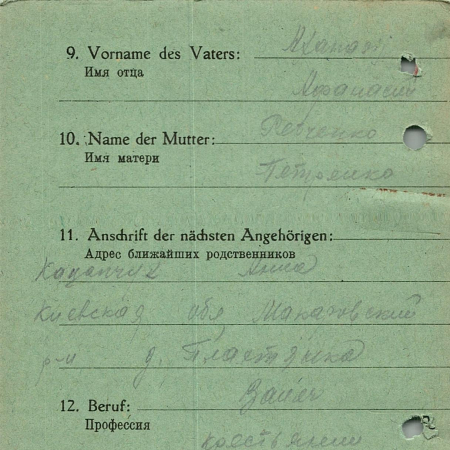 9. Vorname des Vaters:
Имя отца
Афанасий
10. Name der Mutter:
Имя матери
Петренко
11. Anschrift der nächsten Angehörigen:
Адрес ближайших родственников
Анна
Киевская обл Макаровский
р-н д.
12. Beruf: Bauer
Профессия
крестьянин